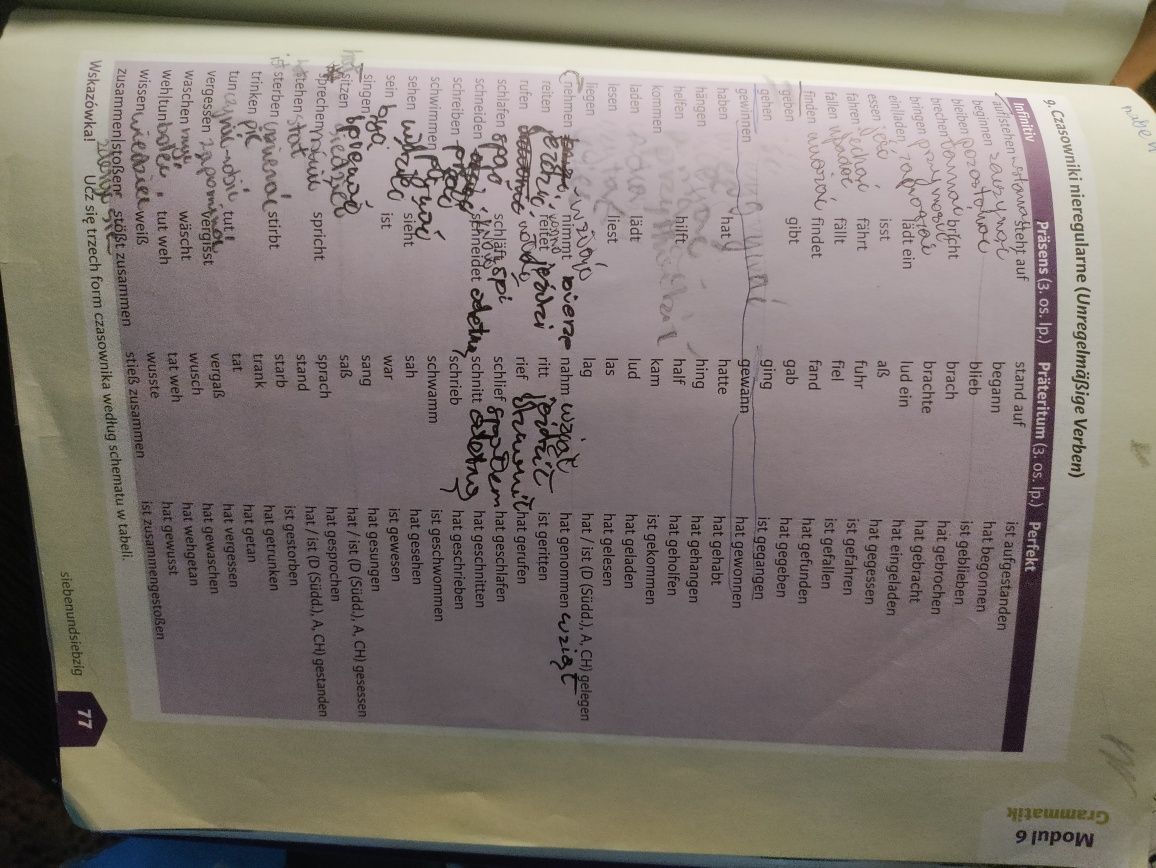 Modul 6
Grammatik
9. Czasowniki nieregularne (Unregelmäßige Verben)
Infinitiv Präsens (3. os. lp.) Präteritum (3. os. lp.) Perfekt
aufstehen steht auf stand auf ist aufgestanden
beginnen zaczynać begann hat begonnen
bleiben pozostawać blieb ist geblieben
brechen łamać bricht brach hat gebrochen
bringen przynosić brachte hat gebracht
einladen zapraszać lädt ein lud ein hat eingeladen
essen jeść isst aß hat gegessen
fahren jechać fährt fuhr ist gefahren
fallen upadać fällt fiel ist gefallen
finden findet fand hat gefunden
geben gibt gab hat gegeben
gehen ging ist gegangen
gewinnen gewann hat gewonnen
haben hat hatte hat gehabt
hängen hing hat gehangen
helfen hilft half hat geholfen
kommen kam ist gekommen
laden lädt lud hat geladen
lesen liest las hat gelesen
liegen lag hat / ist (D (Südd.), A, CH) gelegen
nehmen nimmt bierze nahm wziąć hat genommen wziąć
reiten reitet jeździ ritt jeździć ist geritten
rufen rief hat gerufen
schlafen spać schläft śpi schlief hat geschlafen
schneiden schneidet schnitt hat geschnitten
schreiben schrieb hat geschrieben
schwimmen pływać schwamm ist geschwommen
sehen sieht sah hat gesehen
sein być ist war ist gewesen
singen śpiewać sang hat gesungen
sitzen siedzieć saß hat / ist (D (Südd.), A, CH) gesessen
sprechen spricht sprach hat gesprochen
stehen stać stand hat / ist (D (Südd.), A, CH) gestanden
sterben umierać stirbt starb ist gestorben
trinken pić trank hat getrunken
tun tut tat hat getan
vergessen zapominać vergisst vergaß hat vergessen
waschen myć wäscht wusch hat gewaschen
wehtun boleć tut weh tat weh hat wehgetan
wissen wiedzieć weiß wusste hat gewusst
zusammenstoßen stößt zusammen stieß zusammen ist zusammengestoßen
Wskazówka! Ucz się trzech form czasownika według schematu w tabeli.
siebenundsiebzig 77